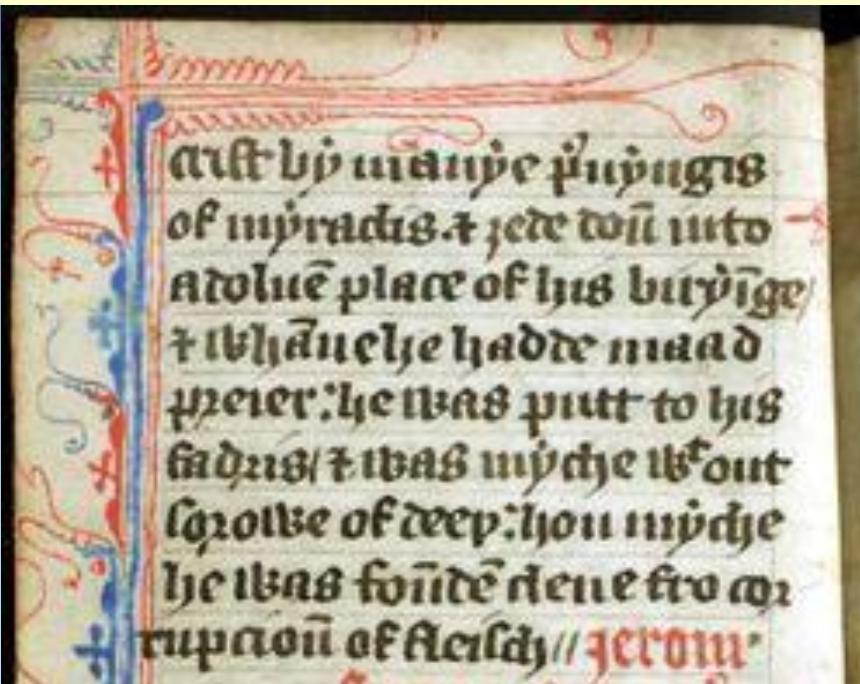 crist bẏ manẏe p̓uẏngis
of mẏraclis. ⁊ ȝede doū into
a doluē place of his birẏīge/
⁊ whāne he hadde maad
preier: he was putt to his
fadris/ ⁊ was mẏche wͭout
sorowe of deeþ: hou mẏche
he was foūdē clene fro cor
rupcioū of fleisch// Jerom·